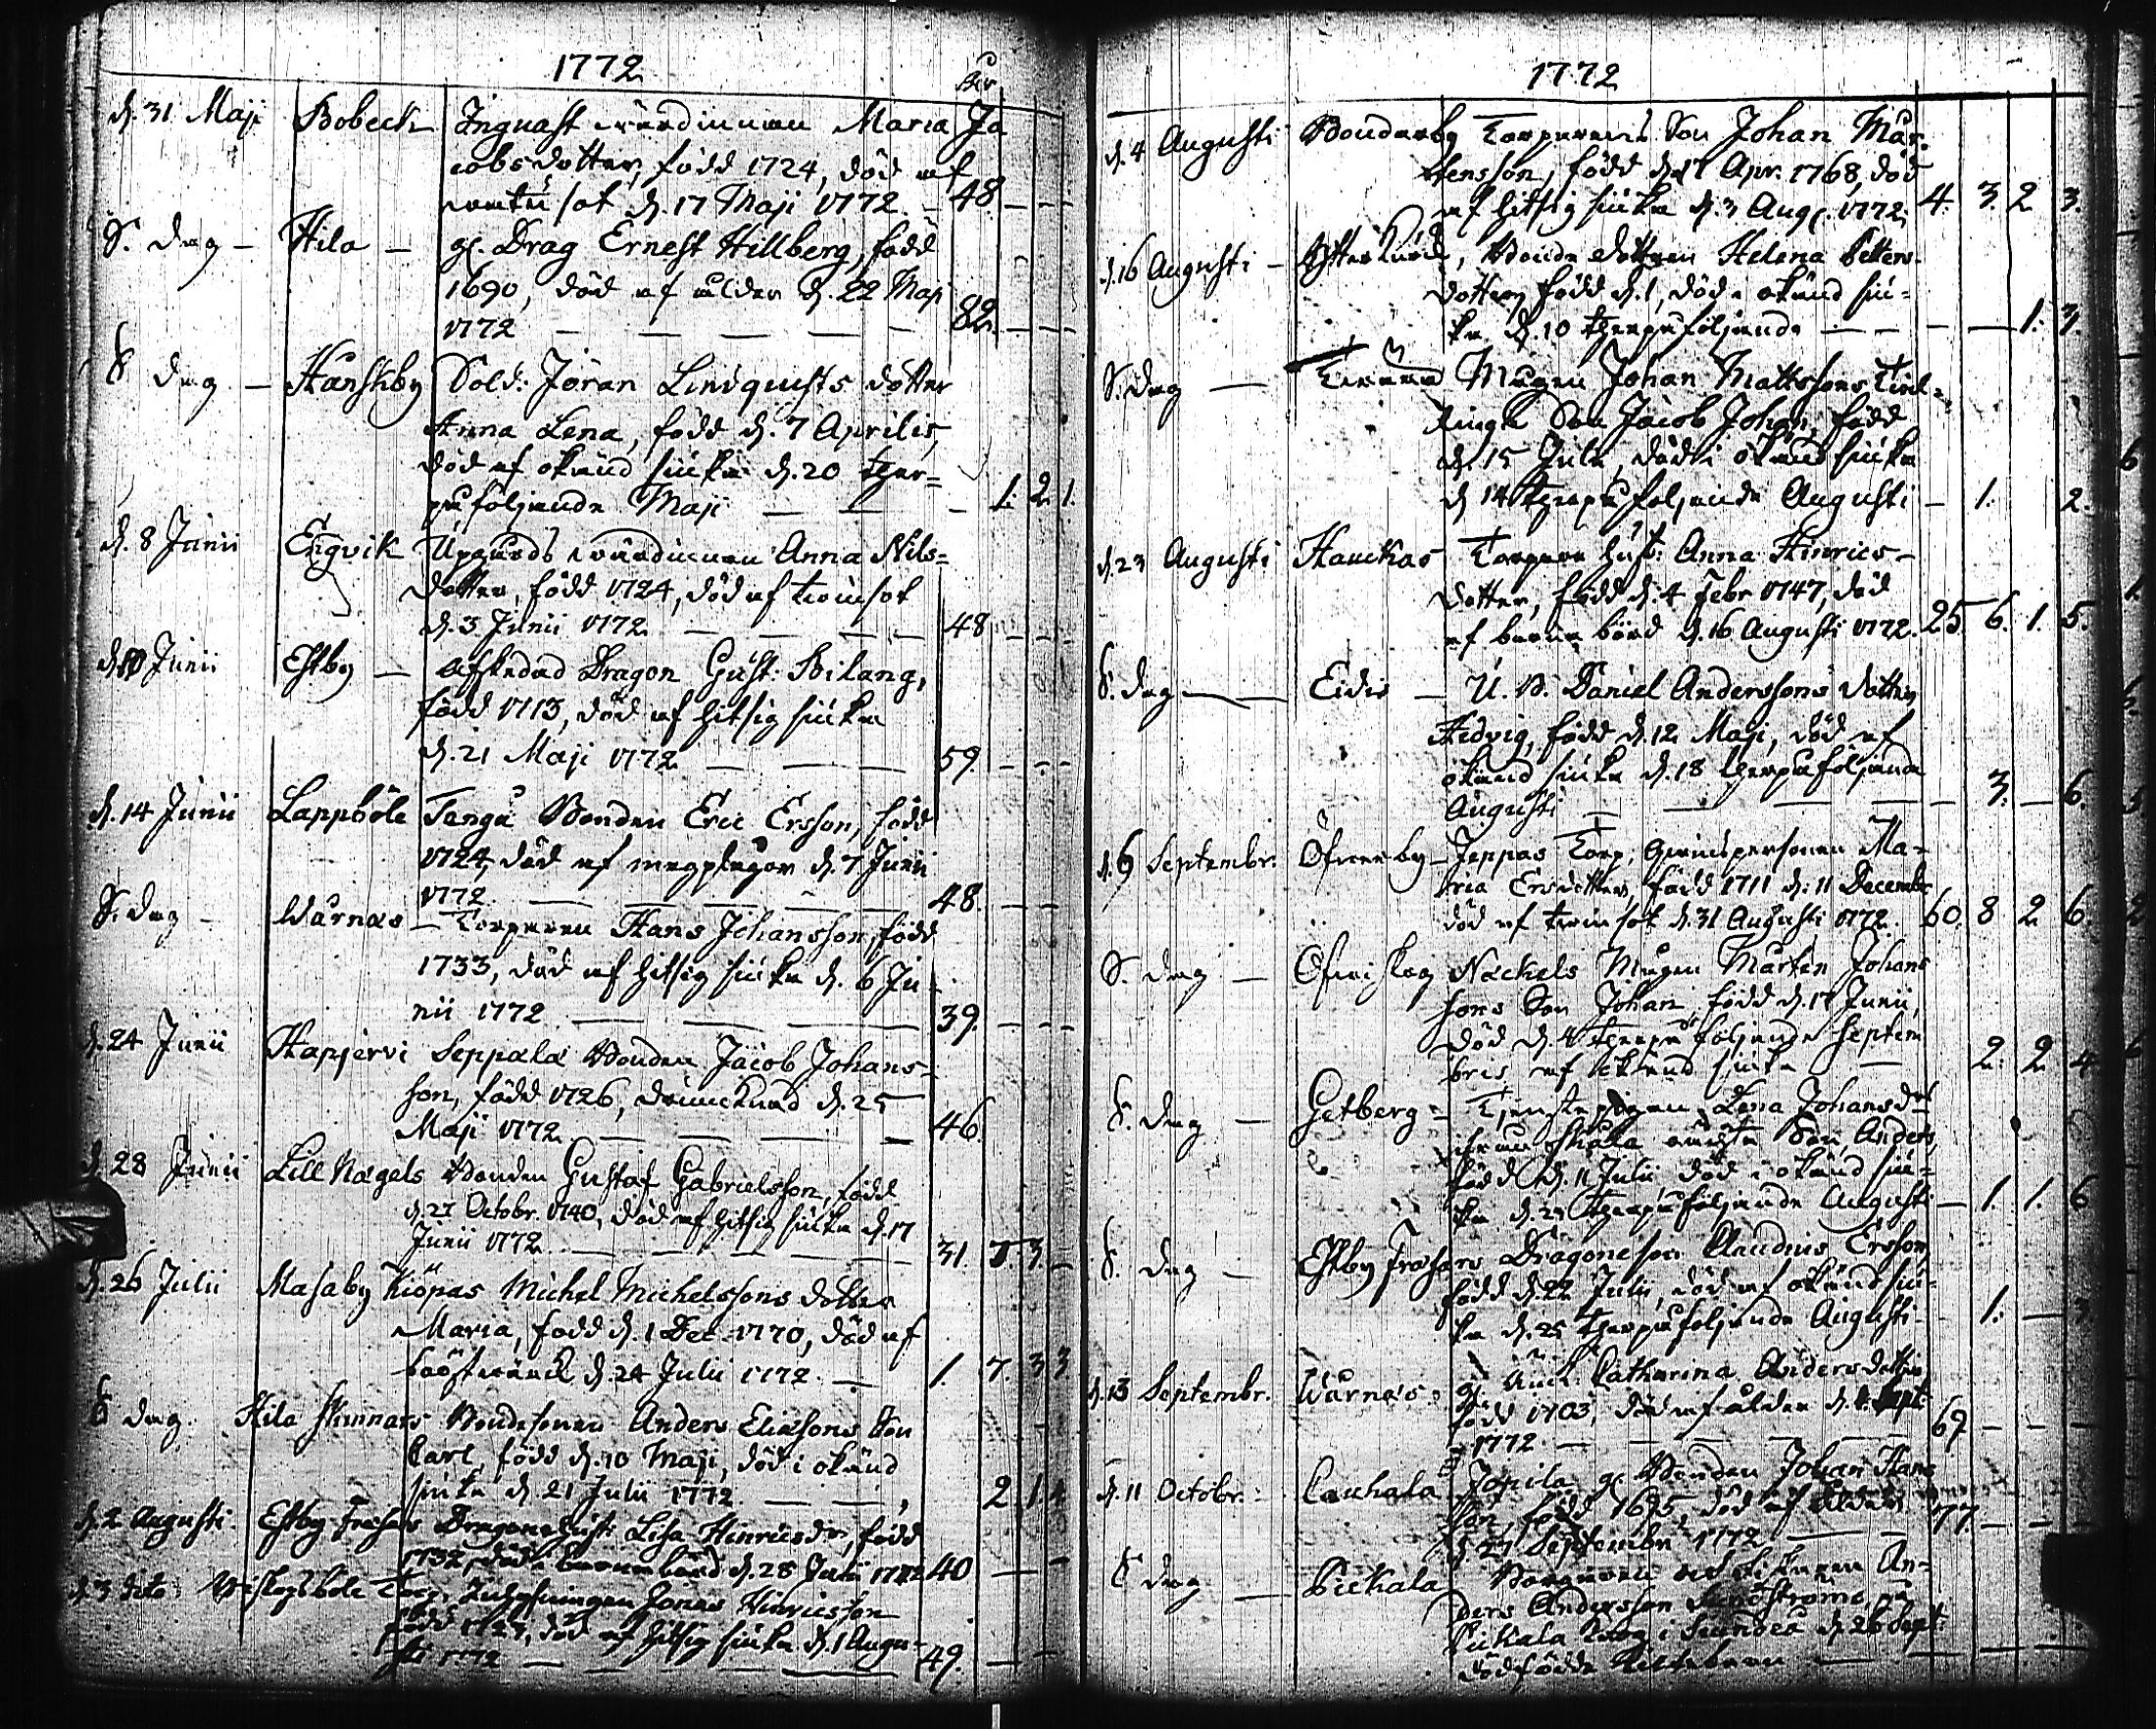 1772
åhr
d. 31 Maji Bobeck Ingvast wärdinnan Maria Ja
cobsdotter, född 1724, död af
d. 17 Maji 1772 — 48. — — —
S. dag — Hila — gl. Drag Ernest Hillberg, född
1690, död af ålder d. 22 Maji
1772 — — — — — 82. — — —
S. dag — Hanskby Sold: Jöran Lindquists dotter
Anna Lena, född d. 7 Aprilis,
död af okänd siuka d. 20 ther=
påföljande Maji — — — 1. 2. 1.
d. 8 Junii Engvik Upgårds wärdinnan Anna Nils=
dotter, född 1724, död af twinsot
d. 3 Junii 1772 — — — — 48 — — —
Junii Estby — afskedad Dragon Gust: Bilang,
född 1713, död af hitsig siuka
d. 21 Maji 1772 — — — 59. — — —
d. 14 Junii Lappböle Tengå Bonden Eric Ersson, född
1724, död af magplågor d. 7 Junii
1772. — — — — 48. — —
S. dag — Wärnäs — Torparen Hans Johansson, född
1733, död af hitsig siuka d. 6 Ju
nii 1772 — — — 39. — — —
d. 24 Junii Hapjervi Seppälä Bonden Jacob Johans=
son, född 1726, drunknad d. 25
Maji 1772 — — — — 46.
d. 28 Junii Lill Nägels Bonden Gustaf Gabrielsson, född
d. 27 Octobr. 1740, död af hitsig siuka d. 17
Junii 1772 — — — — 31. 7. 3. —
d. 26 Julii Masaby Kiöpas Michel Michelssons dotter
Maria, född d. 1 Dec. 1770, död af
bröstwärck d. 24 Julii 1772. — 1. 7. 3 3
S dag. Hila Skinnars Bondesonen Anders Eliæsons Son
Carl, född d. 10 Maji, död i okänd
siuka d. 21 Julii 1772 — — 2. 1. 4
d. 2 Augusti. Estby Dragons hust: Lisa Hinricsdr, född
1732, död i barnsbörd d. 28 Julii 1772 40 — —
d. 3 dito Torp. Inhysingen Jonas Hinricsson
född 1723, död af hitsig siuka d. 1 Augu-
sti 1772 — — — — 49. — —
1772
d. 4 Augusti Bonderby Torparens Son Johan Mår-
tensson, född d. 17 Apr. 1768, död
af hitsig siuka d. 3 Aug. 1772. 4. 3. 2 3.
d. 16 Augusti — Bonde dottren Helena Petters-
dotter, född d. 1, död i okänd siu=
ka d. 10 therpåföljande — — — — 1. 3.
S. dag — Mågen Johan Mattssons
Son Jacob Johan, född
d. 15 Julii, död i okänd siuka
d 14 therpåföljande Augusti — 1. 2.
d. 23 Augusti Hauckas Torpare hust: Anna Hinrics-
dotter, född d. 4 Febr 1747, död
af barnsbörd d. 16 Augusti 1772. 25. 6. 1. 5.
S. dag — Eidis — U. B. Daniel Anderssons dotter
Hedvig, född d. 12 Maji, död af
okänd siuka d. 18 therpåföljande
Augusti — — — — 3. — 6.
d. 6 Septembr. Öfwerby — Jeppas Torp, qwinspersonen Ma-
ria Ersdotter, född 1711 d. 11 Decembr.
död af twinsot d. 31 Augusti 1772. 60. 8 2 6.
S. dag — Nackels Mågen Mårten Johans
sons Son Johan, född d. 17 Junii,
död d. 4 therpåföljande Septem
bris af okänd siuka — 2. 2. 4
S. dag — Getberg — Tjenstepigan Lena Johansdr
oächta Son Anders,
född d. 11 Julii, död i okänd siu=
ka d. 27 therpåföljande Augusti — 1. 1. 6
S. dag — Estby Frasars Dragoneson Claudius Ersson,
född d. 22 Julii, död af okänd siu-
ka d. 25 therpåföljande Augusti — 1. — 3
d. 13 Septembr. Wärnäs gl. Änck: Catharina Andersdotter
född 1703, död af ålder d. Sept:
1772 — — — — 69 — — —
d. 11 Octobr. Cauhala Jofsila gl Bonden Johan Hans
son, född 1695, död af ålder
d 27 Septembr 1772 — — 77. — —
S dag — Pickala An-
ders Andersson Sundströms, på
Pickala d. 26 Sept:
dödfödde